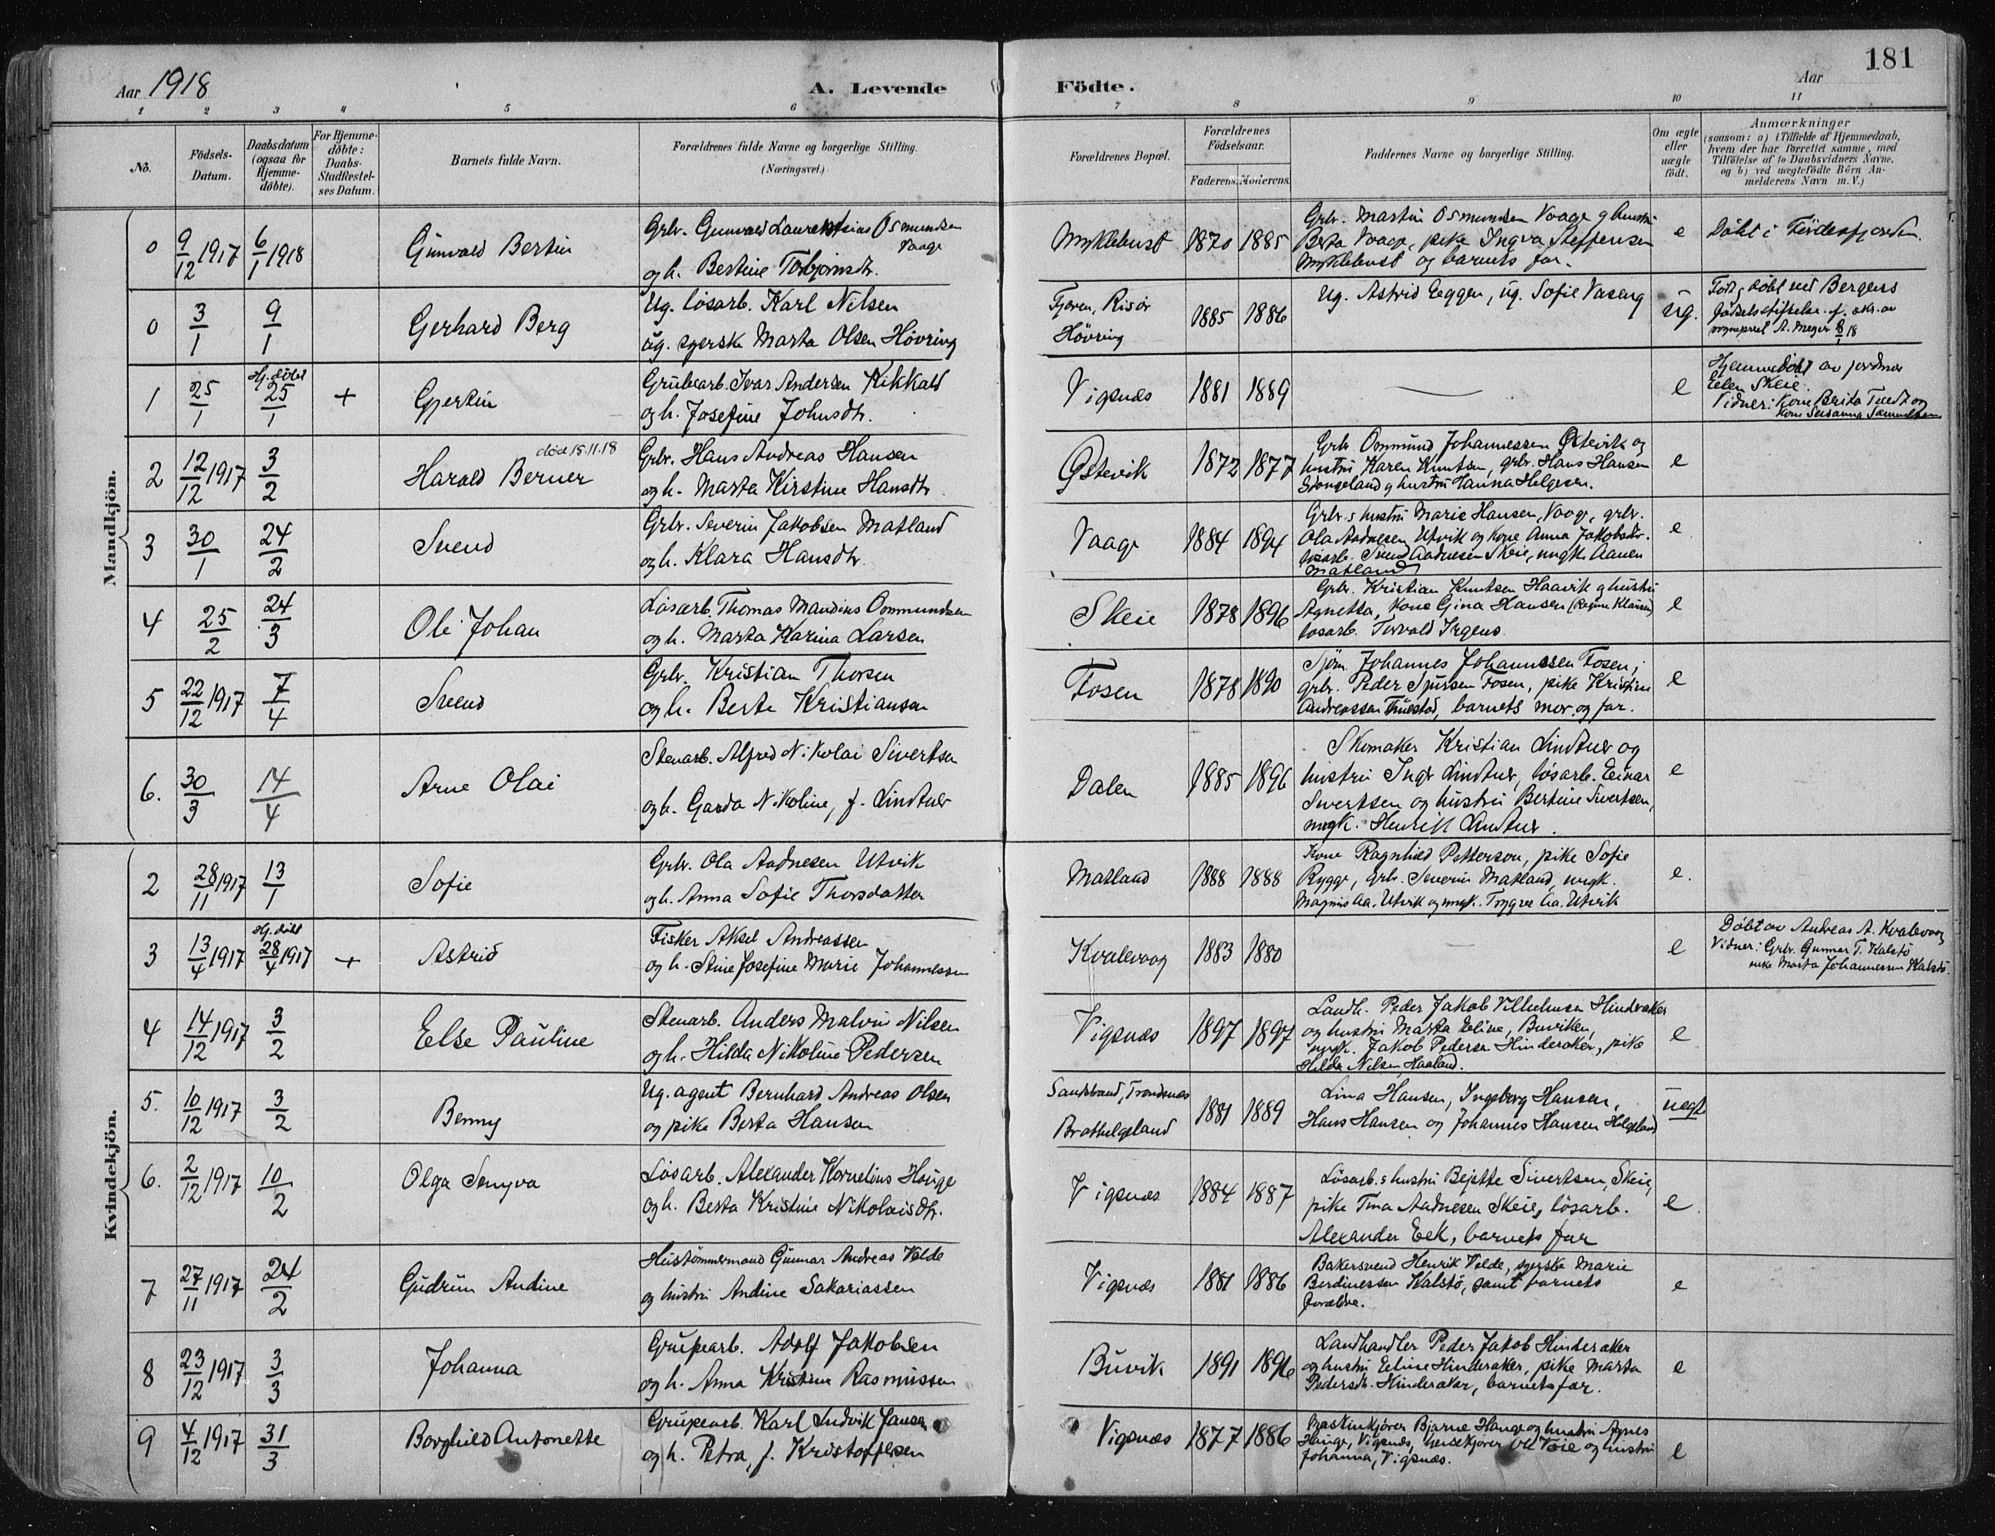 181
Aar 1918
A. Levende Födte.
Aar
1 2 3 4 5 6 7 8 9 10 11
No.
Födsels-Datum.
Daabsdatum (ogsaa for Hjemme-døbte).
For Hjemme-døbte: Daabs-Stadfæstel-ses Datum.
Barnets fulde Navn.
Forældrenes fulde Navne og borgerlige Stilling.
(Næringsvei.)
Forældrenes Bopæl.
Forældrenes Födselsaar.
Faderens. Moderens.
Faddernes Navne og borgerlige Stilling.
Om ægte eller uægte födt.
Anmærkninger
(saasom: a) i Tilfælde af Hjemmedaab,
hvem der har forrettet samme, med
Tilföielse af to Daabsvidners Navne.
og b) ved uægtefödte Börn An-
melderens Navn m. V.)
Mandkjön.
0 9/12 1917 6/1 1918 Gunvald Bertin
Grbr. Gunvald Laurentius Osmundsen Vaage
og h. Bertine Torbjørnsdtr.
Myklebust 1870 1885
Grbr. Martin Osmundsen Vaage g hustru
Berta Vaage, pike Ingva Steffensen
Myklebust og barnets far.
e Døbt i Førdesfjorden
0 3/1 9/1 Gerhard Berg
Ug. løsarb. Karl Nilsen
ug. syerske Marta Olsen Høvring
Risør
Høvring 1885 1886
Ug. Astrid Eeggen, ug. Sofie Vaseng
ug.
Født g døbt ved Bergens
fødselsstiftelse
1 25/1 Hj. døbt 25/1 + Gjertin
Grubearb. Ivar Andersen Kikkald
og h. Josefine Johnsdtr.
Vigsnæs 1881 1889
—
e
Hjemmedøbt av jordmor
Elen Skeie.
Vidner: Kone Brita Tuedt og
Kone Susanna Samuelsen
2 12/12 1917 3/2 Harald Berner død 15.11.18
Grbr. Hans Andreas Hansen
og h. Marta Kirstine Hansdtr.
Østevik 1872 1877
Grbr Ommund Johannessen Østevik og
hustru Karen Knutsen, grbr. Hans Hansen
g hustru Hanna Helgesen.
e
3 30/1 24/2 Svend
Grbr. Severin Jakobsen Matland
og h. Klara Hansdtr.
Vaage 1884 1894
Grbr. s hustru Marie Hansen, Vaage, grbr.
Ola Aadnesen Utvik og kone Anna Jakobsdtr.
løsarb. Svend Aadnesen Skeie, ungk. Aanen
Matland
e
4 25/2 24/3 Ole Johan
Løsarb. Thomas Mandius Ommundsen
og h. Marta Karina Larsen
Skeie 1878 1896
Grbr. Kristian Knutsen Haavik g hustru
Agnetta, kone Gina Hansen (Regine Klausen)
løsarb. Torvald Irgens
e
5 22/12 1917 7/4 Svend
Grbr. Kristian Thorsen
og h. Berte Kristiansen
Fosen 1878 1890
Sjøm. Johannes Johannessen Fosen,
grbr. Peder Sjursen Fosen, pike Kristine
Andreassen barnets mor og far.
e
6. 30/3 14/4 Arne Olai
Stenarb. Alfred Nikolai Sivertsen
og h. Garda Nikoline, f. Lindtner
Dalen 1885 1896
Skomaker Kristian Lindtner og
hustru Inga Lindtner, løsarb. Einar
Sivertsen og hustru Bertine Sivertsen,
ungk. Henrik Lindtner.
e
Kvindekjön.
2 28/11 1917 13/1 Sofie
Grbr. Ola Aadnesen Utvik
og h. Anna Sofie Thorsdatter
Matland 1888 1888
Kone Ragnhild Petterson, pike Sofie
Rygge, grbr. Severin Matland, ungk.
Magnus Aa. Utvik og ungk. Trygve Aa. Utvik
e.
3 13/4 1917 Hj. døbt 28/4 1917 + Astrid
Fisker Aksel Andreassen
og h. Stine Josefine Marie Johannessen
Kvalevaag 1883 1880
—
e
Døbt av Andreas A. Kvalevaag
Vidner: Grbr. Gunnar T. Kalstø
enke Marta Johannessen Kalstø.
4 14/12 1917 3/2 Else Pauline
Stenarb. Anders Malvin Nilsen
og h. Hilda Nikoline Pedersen
Vigsnæs 1897 1897
Landh. Peder Jakob Vilhelmsen Hinderaker
og hustru Marta Eline, Buviken,
ungk. Jakob Pedersen Hinderaker, pike
Hilda Nilsen Haaland.
e
5. 10/12 1917 3/2 Benny
Ug. agent Bernhard Andreas Olsen
og pike Berta Hansen
Sandstrand, Trondenæs
Brathelgeland 1881 1889
Lina Hansen, Ingeborg Hansen,
Hans Hansen og Johannes Hansen Helgeland
uegt
6. 2/12 1917 10/2 Olga Senyva
Løsarb. Alexander Kornelius Hauge
og h. Berta Kristine Nikolaisdtr.
Vigsnæs 1884 1887
Løsarb. s hustru Sivertsen, Skeie,
pike Tina Aadnesen Skeie, løsarb.
Alexander Eek, barnets far
e
7 27/11 1917 24/2 Gudrun Andine
Hustømmermand Gunnar Andreas Velde
og hustru Andine Sakariassen
Vigsnæs 1881 1886
Bakersvend Henrik Velde, syerske Marie
Berdinessen Kalstø, samt barnets
forældre.
e
8 23/12 1917 3/3 Johanna
Grupearb. Adolf Jakobsen
og h. Anna Kristine Rasmussen
Buvik 1891 1896
Landhandler Peder Jakob Hinderaker
og hustru Eeline Hinderaker, pike Marta
Pedersdtr. Hinderaker, barnets far.
e
9 4/12 1917 31/3 Borghild Antonette
Grupearb. Karl Ludvik Jansen
og h. Petra, f. Kristoffersen
Vigsnæs 1877 1886
Maskinkjører Bjarne Hauge og hustru Agnes
Hauge, Vigsnæs, Ole Vøie og hustru
Johanna, Vigsnæs.
e